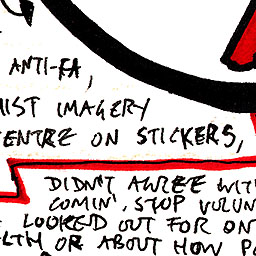 ANTI-FA,
HIST IMAGERY
ENTRE ON STICKERS,
DIDN'T AGREE WIT
COMIN', STOP VOLUN
LOOKED OUT FOR ON
LTH OR ABOUT HOW P